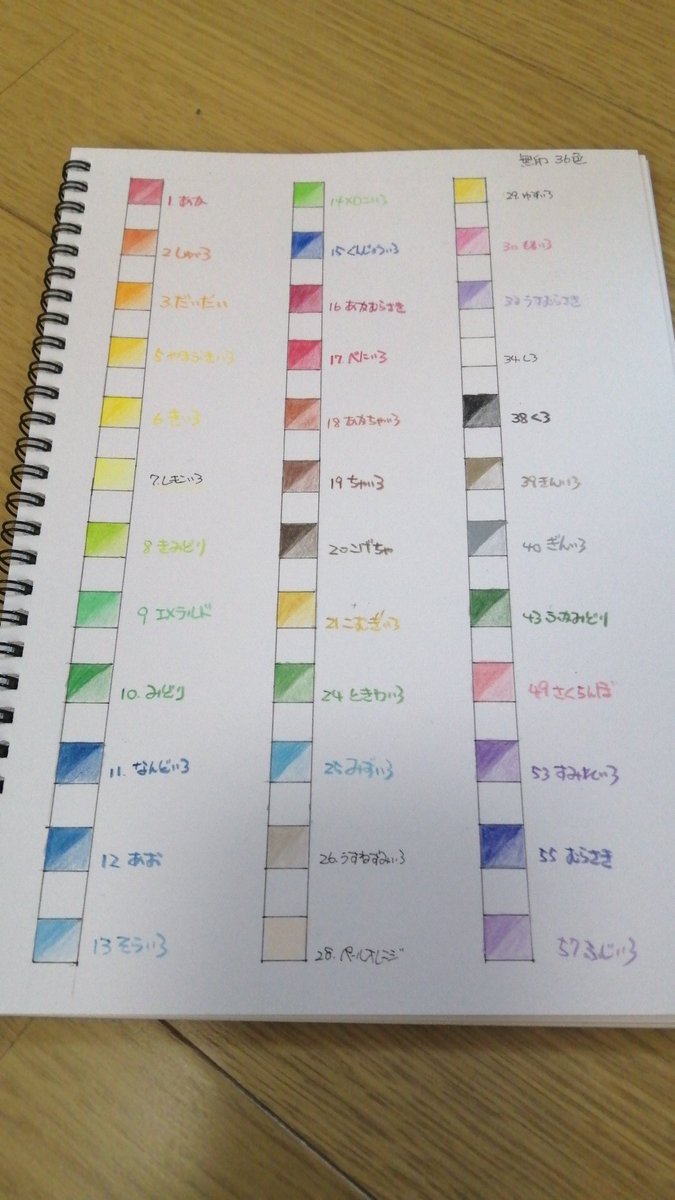 無印 36色
1. あか
2 しゅいろ
3. だいだい
5 やまぶきいろ
6 きいろ
7. レモンいろ
8 きみどり
9 エメラルド
10. みどり
11. なんどいろ
12 あお
13 そらいろ
14 メロンいろ
15 ぐんじょういろ
16 あかむらさき
17. べにいろ
18 あかちゃいろ
19 ちゃいろ
20 こげちゃ
21 こむぎいろ
24 ときわいろ
25 みずいろ
26. うすねずみいろ
28. ペールオレンジ
29. ゆずいろ
30 ももいろ
33 うすむらさき
34. しろ
38 くろ
39 きんいろ
40 ぎんいろ
43 ふかみどり
49 さくらんぼ
53 すみれいろ
55 むらさき
57 ふじいろ